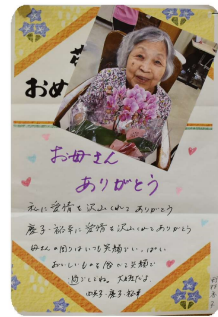 おめ
お母さん
ありがとう
私に愛情を沢山くれてありがとう
慶子・裕幸に愛情を沢山くれてありがとう
母さんの周りはいつも笑顔でいっぱい
おいしいものを食べて笑顔で
過ごしてね。大好きだよ